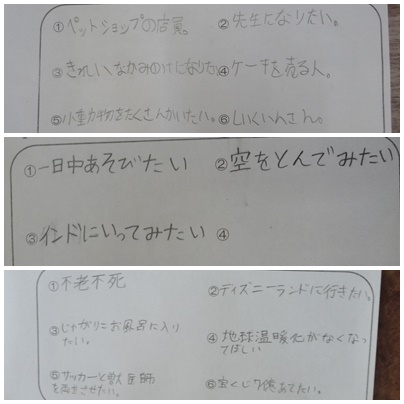 ①ペットショップの店員。 ②先生になりたい。
③きれいなかみのけになりた ④ケーキを売る人。
⑤動物をたくさんかいたい。 ⑥しいくいんさん。
①一日中あそびたい ②空をとんでみたい
③インドにいってみたい ④
①不老不死 ②ディズニーランドに行きたい。
③じゃがりこお風呂に入り
たい。
④地球温暖化がなくなっ
てほしい
⑤サッカーと獣医師
を両立させたい。
⑥宝くじ7億あてたい。